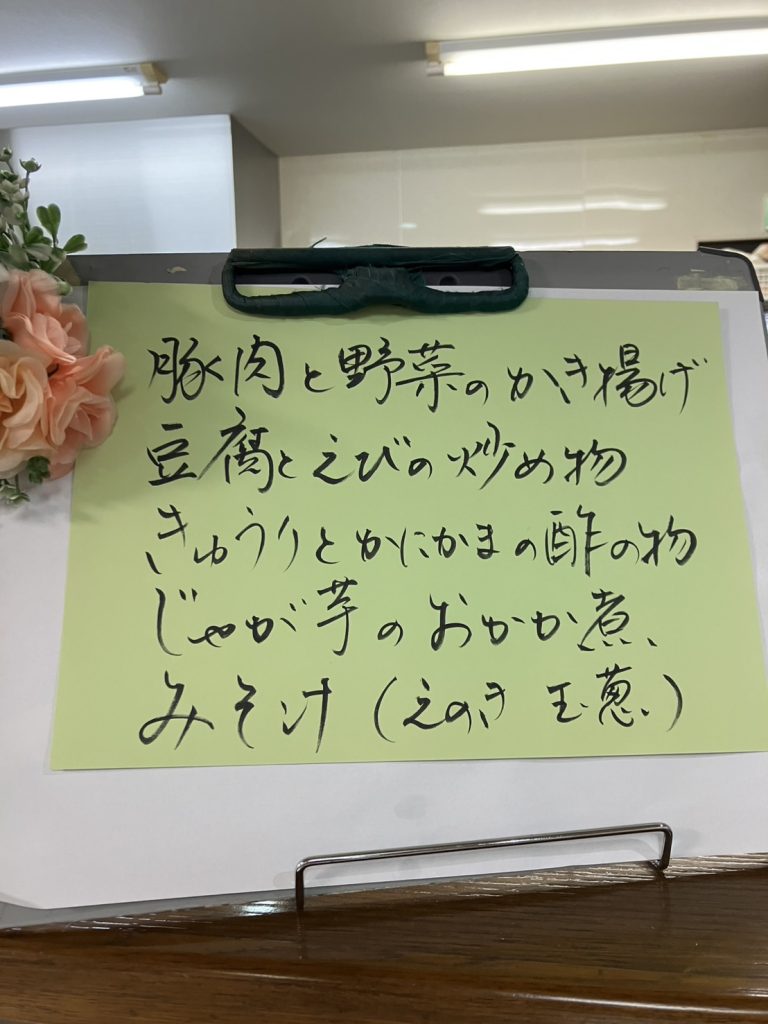 豚肉と野菜のかき揚げ
豆腐とえびの炒め物
きゅうりとかにかまの酢の物
じゃが芋のおかか煮
みそ汁（えのき 玉葱）